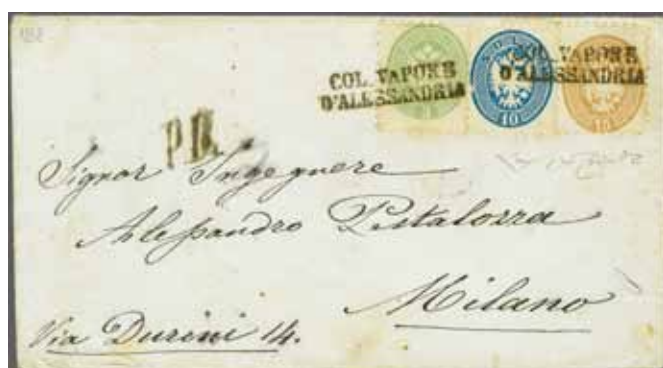 COL. VAPORE
D'ALESSANDRIA
COL. VAPORE
D'ALESSANDRIA
SOLDI
10
15
P.D.
Signor Ingegnere
Alessandro Pestalozza
Milano
Via Durini 14.